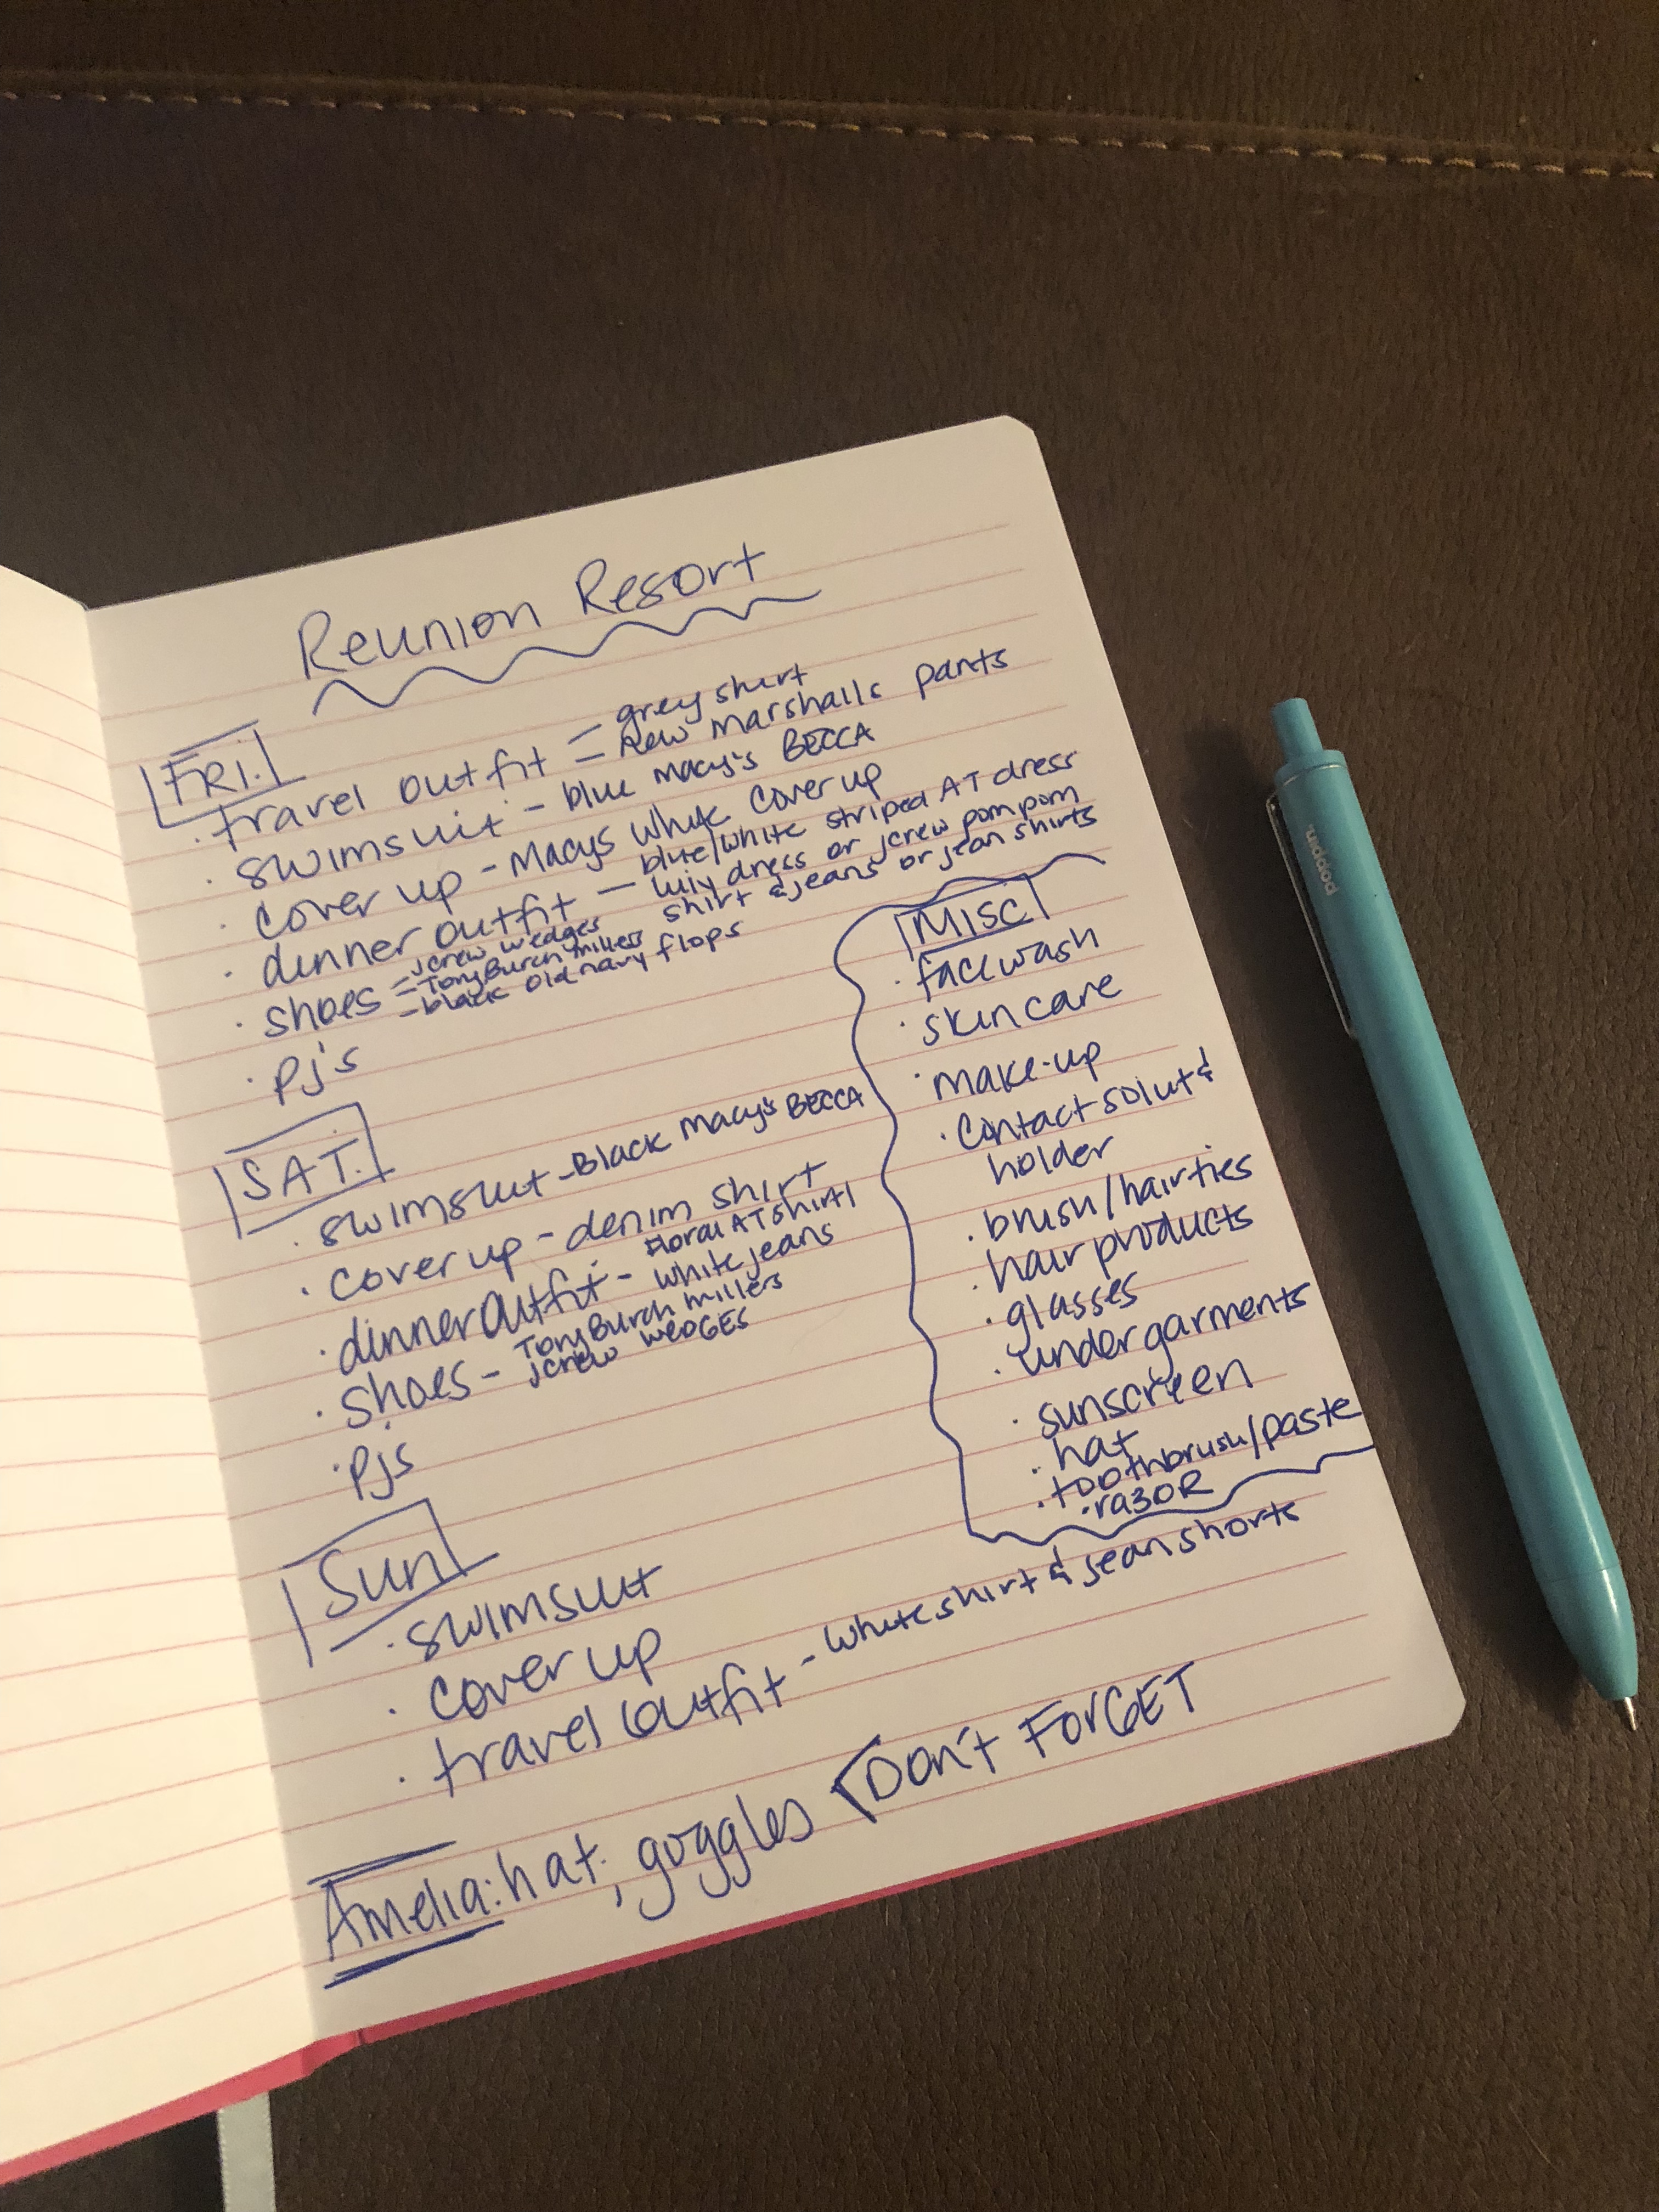 Reunion Resort
FRI.
· travel outfit = grey shirt
new Marshalls pants
· swimsuit - blue Macy's BECCA
· cover up - Macys white cover up
· dinner outfit — blue/white striped AT dress
lily dress or jcrew pompom
shirt & jeans or jean shirts
· shoes = jcrew wedges
- Tory Burch millers
- black old navy flops
· pj's
SAT.
· swimsuit - Black Macy's BECCA
· cover up - denim shirt
· dinner outfit - Floral AT shirt/
white jeans
· shoes - Tory Burch millers
jcrew WEDGES
· pjs
Sun
· swimsuit
· cover up
· travel outfit - white shirt & jean shorts
Misc
· facewash
· skincare
· make-up
· contact solut &
holder
· brush/hairties
· hair products
· glasses
· undergarments
· sunscreen
· hat
· toothbrush/paste
· razor
Amelia: hat, goggles Don't FORGET
poppin.